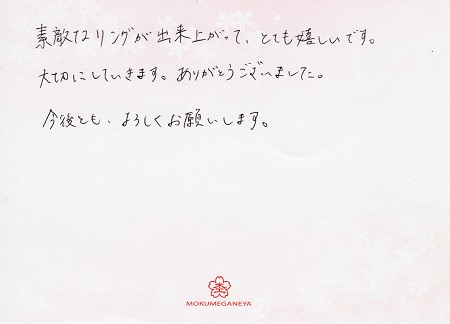 素敵なリングが出来上がって、とても嬉しいです。
大切にしていきます。ありがとうございました。
今後とも、よろしくお願いします。
MOKUMEGANEYA